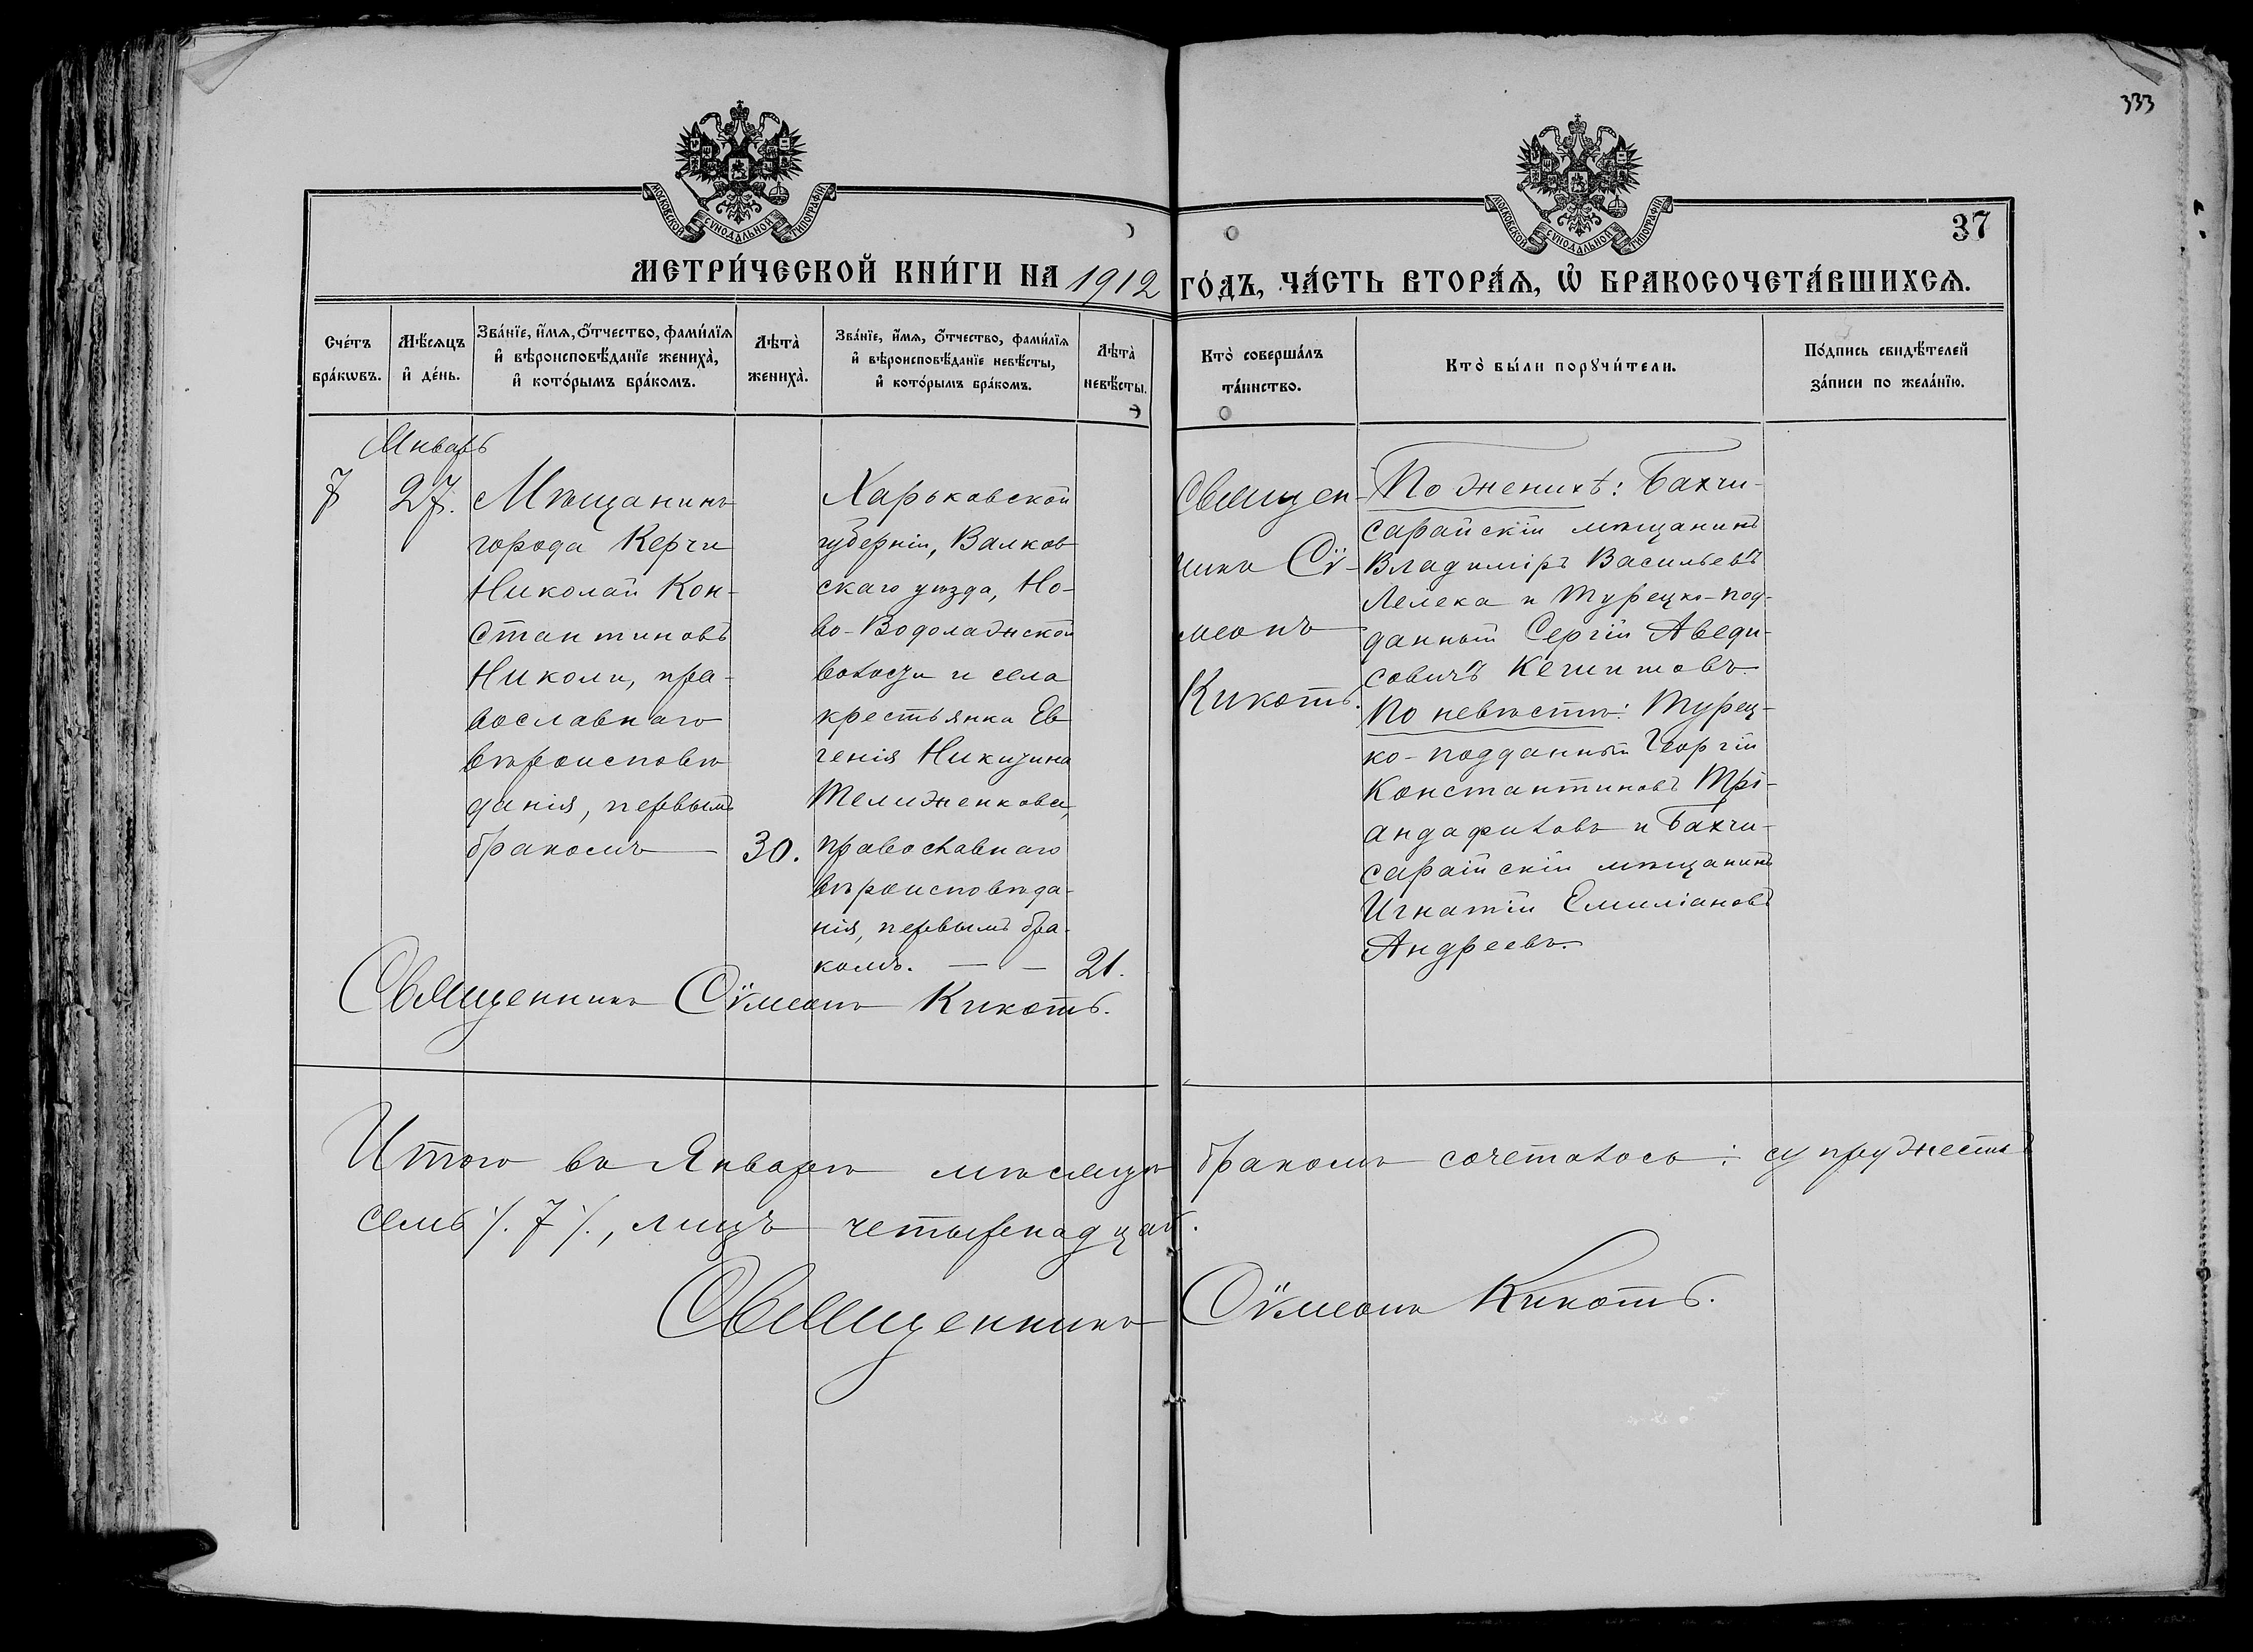 333
МОСКОВСКОЙ СУНОДАЛЬНОЙ ТИПОГРАФІИ
МОСКОВСКОЙ СУНОДАЛЬНОЙ ТИПОГРАФІИ
37
МЕТРИ́ЧЕСКОЙ КНИ́ГИ НА 1912 ГО́ДЪ, ЧА́СТЬ ВТОРА́Ѧ, Ѡ҆ БРАКОСОЧЕТА́ВШИХСѦ.
Сче́тъ
бра́кѡвъ.
Мѣ́сѧцъ
и҆ де́нь.
Зва́нїе, и҆́мѧ, ѻ҆́тчество, фами́лїѧ
и҆ вѣроисповѣ́данїе жениха̀,
и҆ кото́рымъ бра́комъ.
Лѣта̀
жениха̀.
Зва́нїе, и҆́мѧ, ѻ҆́тчество, фами́лїѧ
и҆ вѣроисповѣ́данїе невѣ́сты,
и҆ кото́рымъ бра́комъ.
Лѣта̀
невѣ́сты.
Кто̀ соверша́лъ
та́инство.
Кто̀ бы́ли порꙋчи́тели.
По́дпись свидѣ́телей
за́писи по жела́нїю.
Январь
7
27.
Мѣщанинъ
города Керчи
Николай Кон-
стантиновъ
Николи, пра-
вославнаго
вѣроисповѣ
данія, первымъ
бракомъ —
30.
Харьковской
губерніи, Валков
скаго уѣзда, Но-
во-Водолажской
волости и села
крестьянка Ев
генія Никитина
Тележенкова,
православнаго
вѣроисповѣда-
нія, первымъ бра-
комъ. — —
21.
Священ-
никъ Сѵ-
меонъ
Кикоть.
По женихѣ: Бахчи-
сарайскій мѣщанинъ
Владиміръ Васильевъ
Лелека и Турецко-под-
данный Сергій Аведи-
совичъ Кешишовъ.
По невѣстѣ: Турец-
ко-подданный Георгій
Константиновъ Трі-
андафиловъ и Бахчи-
сарайскій мѣщанинъ
Игнатій Емиліановъ
Андреевъ.
Священникъ Сѵмеонъ Кикоть.
Итого въ Январѣ мѣсяцѣ бракомъ сочеталось: супружествъ
семь /. 7 /., лицъ четырнадцать.
Священникъ Сѵмеонъ Кикоть.